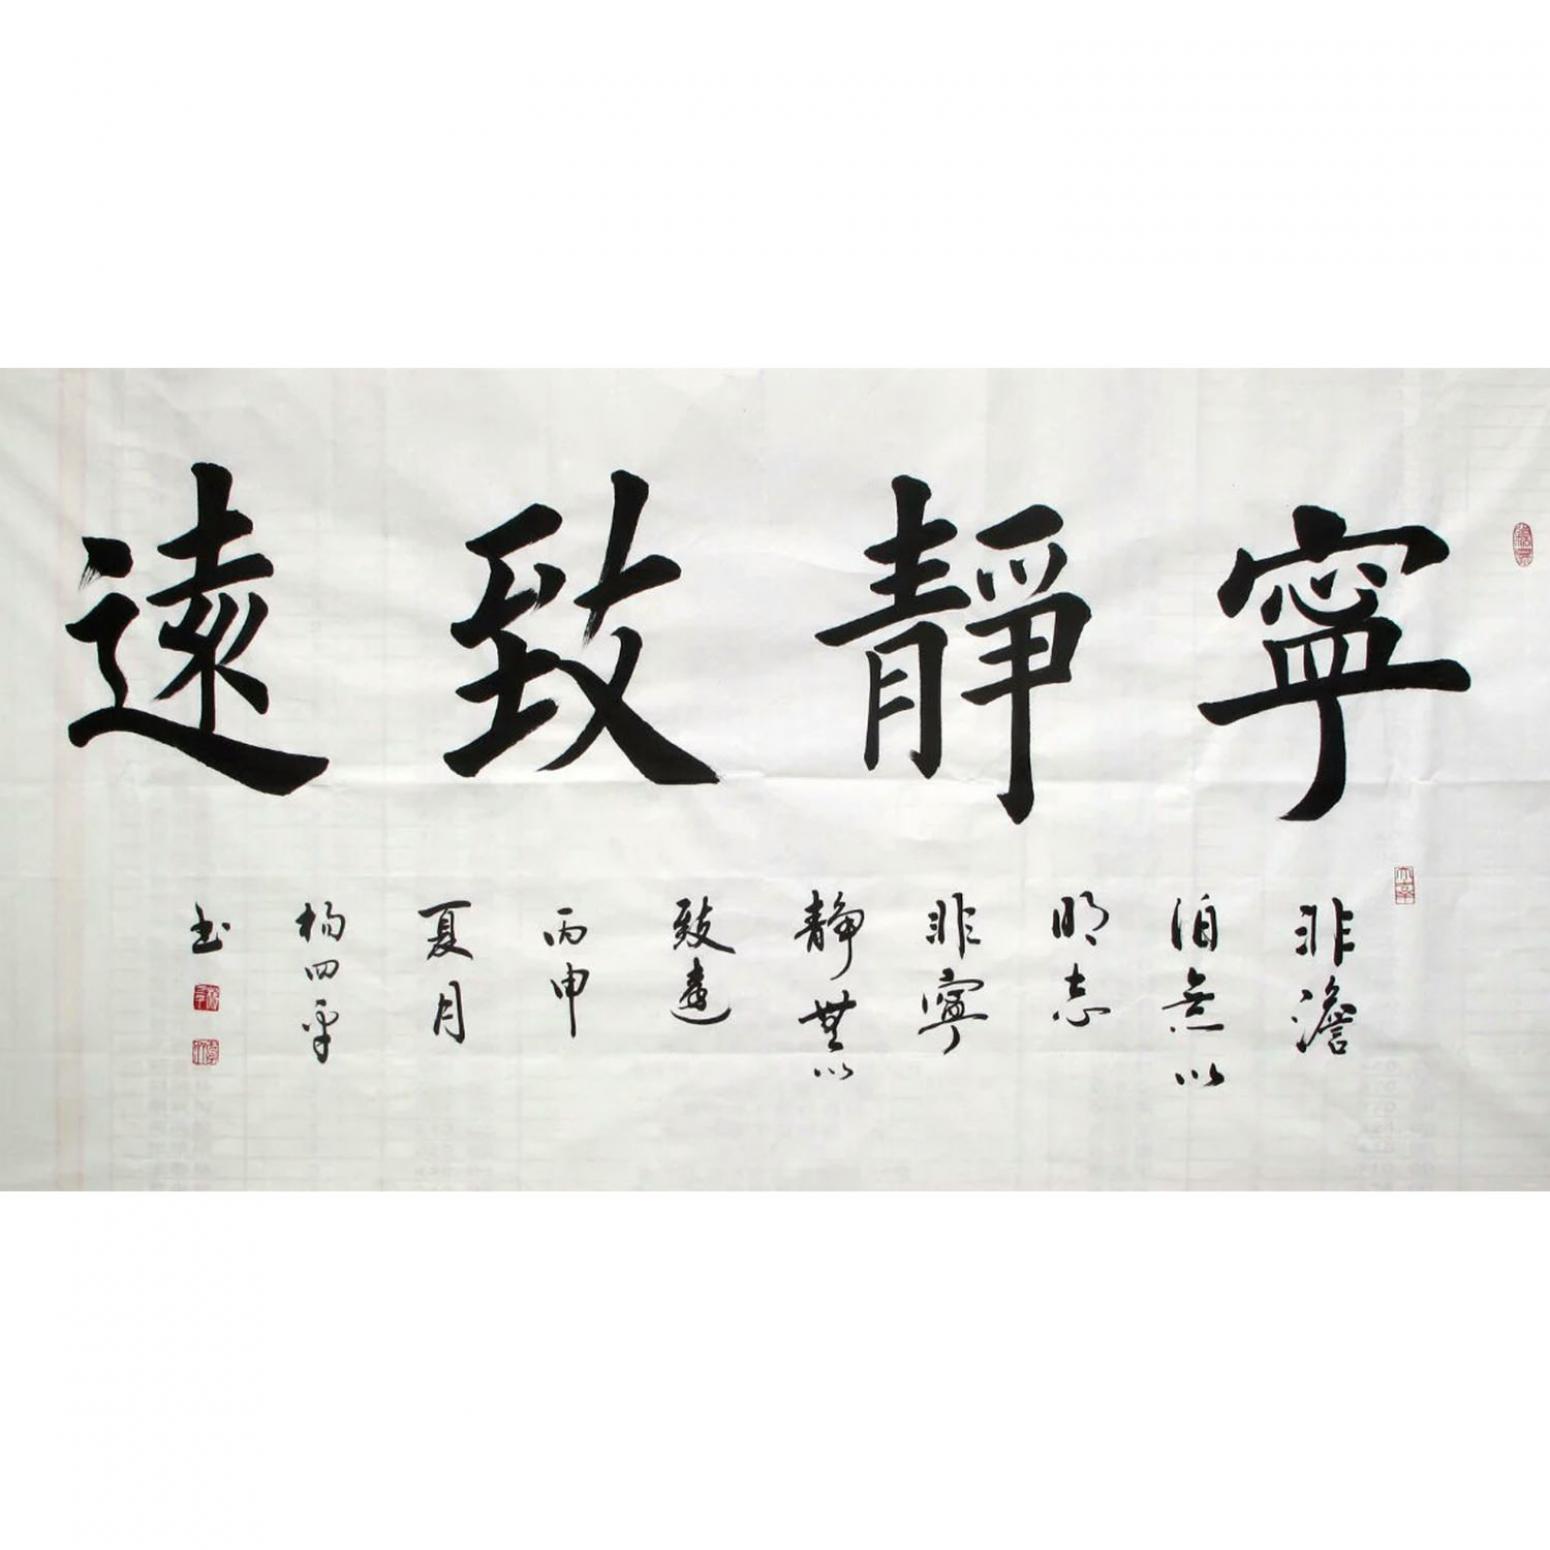 寧靜致遠
非澹
泊無以
明志
非寧
静無以
致遠
丙申
夏月
楊四平
书